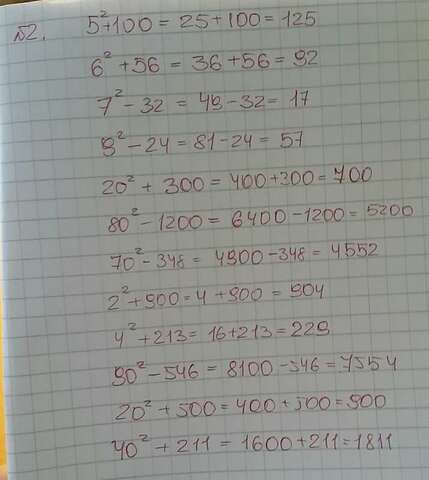 №2. 5²+100 = 25+100 = 125
6² + 56 = 36+56 = 92
7² - 32 = 49 - 32 = 17
9² - 24 = 81 - 24 = 57
20² + 300 = 400+300 = 700
80² - 1200 = 6400 - 1200 = 5200
70² - 348 = 4900 - 348 = 4552
2² + 900 = 4 + 900 = 904
4² + 213 = 16+213 = 229
90² - 546 = 8100 - 546 = 7554
20² + 500 = 400 + 500 = 900
40² + 211 = 1600+211 = 1811